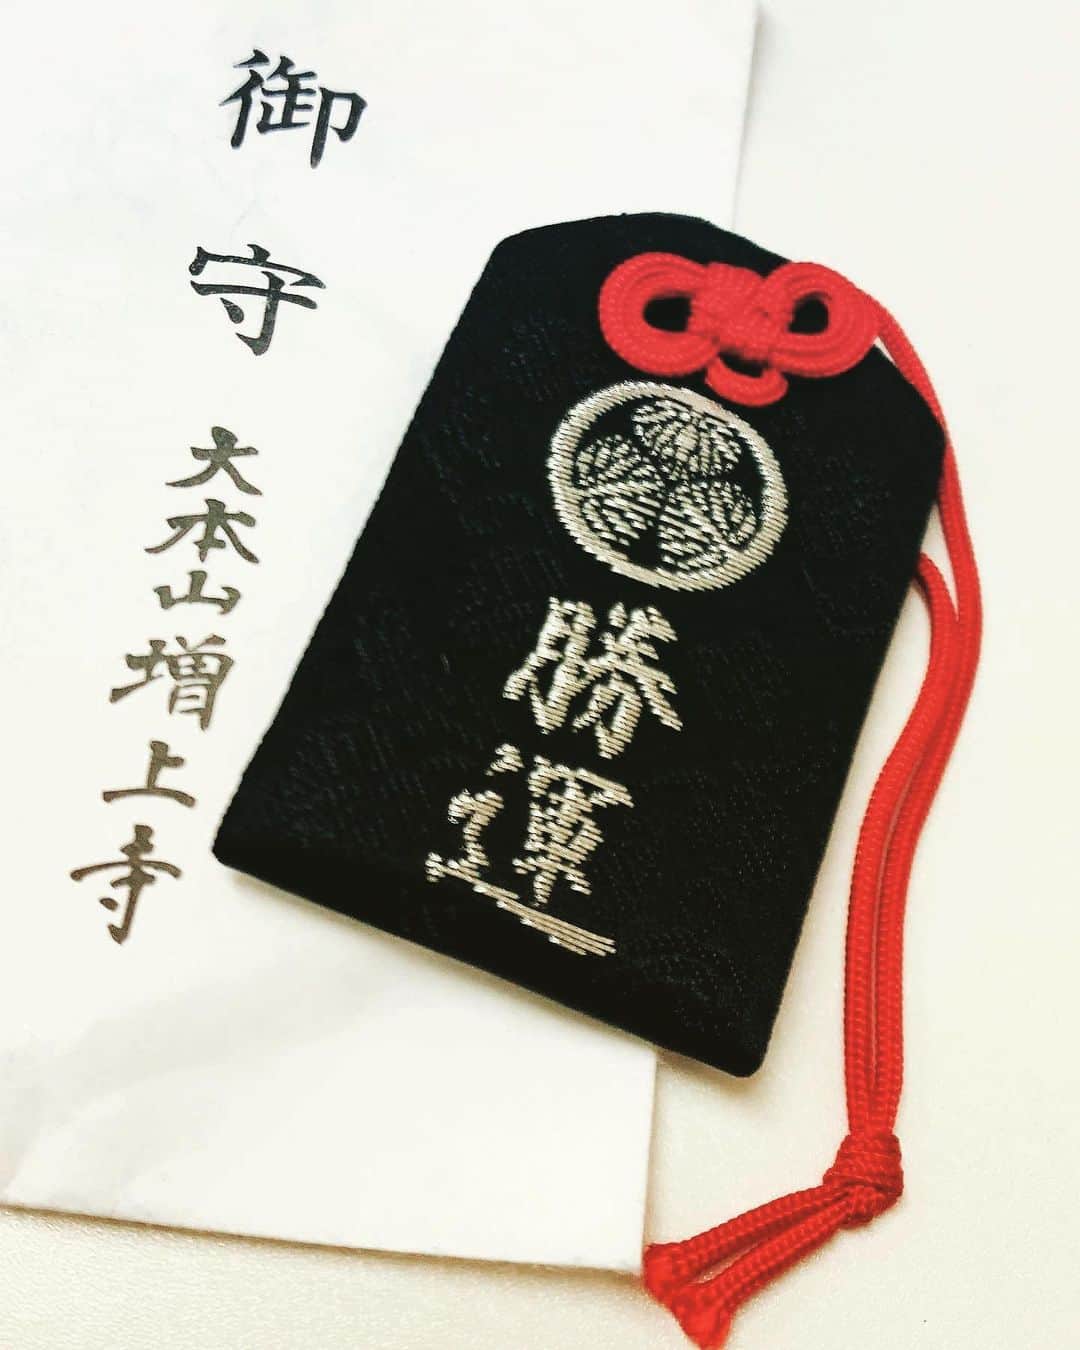 御守
大本山増上寺
勝運